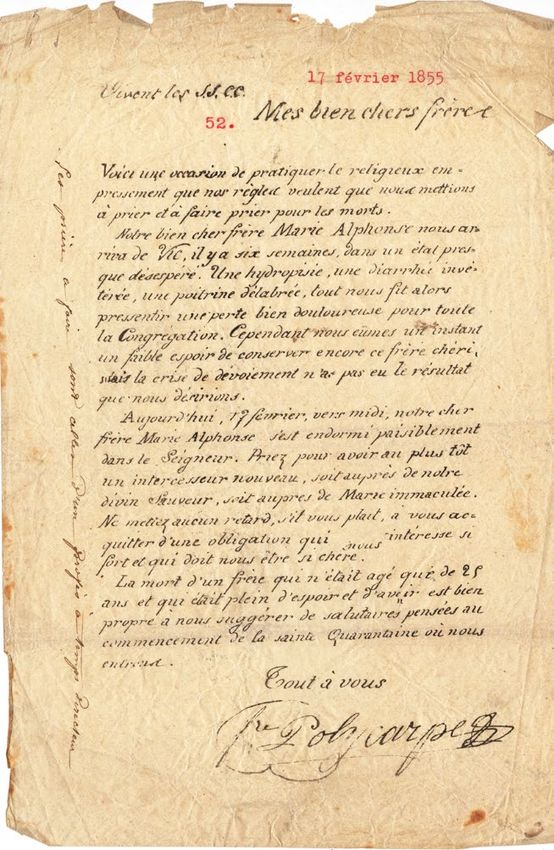 17 février 1855
Vivent les SS.CC.
52.
Mes bien chers frères
Voici une occasion de pratiquer le religieux em-
pressement que nos règles veulent que nous mettions
à prier et à faire prier pour les morts.
Notre bien cher frère Marie Alphonse nous ar-
riva de Vic, il y a six semaines, dans un état pres-
que désespéré. Une hydropisie, une diarrhée invé-
térée, une poitrine délabrée, tout nous fit alors
pressentir une perte bien douloureuse pour toute
la Congrégation. Cependant nous eûmes un instant
un faible espoir de conserver encore ce frère chéri,
mais la crise de dévoiement n'a pas eu le résultat
que nous désirions.
Aujourd'hui, 17 février, vers midi, notre cher
frère Marie Alphonse s'est endormi paisiblement
dans le Seigneur. Priez pour avoir au plus tôt
un intercesseur nouveau, soit auprès de notre
divin Sauveur, soit auprès de Marie immaculée.
Ne metiez aucun retard, s'il vous plait, à vous ac-
quitter d'une obligation qui nous intéresse si
fort et qui doit nous être si chère.
La mort d'un frère qui n'était agé que de 25
ans et qui était plein d'espoir et d'avenir est bien
propre à nous suggérer de salutaires pensées au
commencement de la sainte Quarantaine où nous
entrons.
Tout à vous
Fre Polycarpe
Les prières à faire sont celles d'un profès à temps directeur